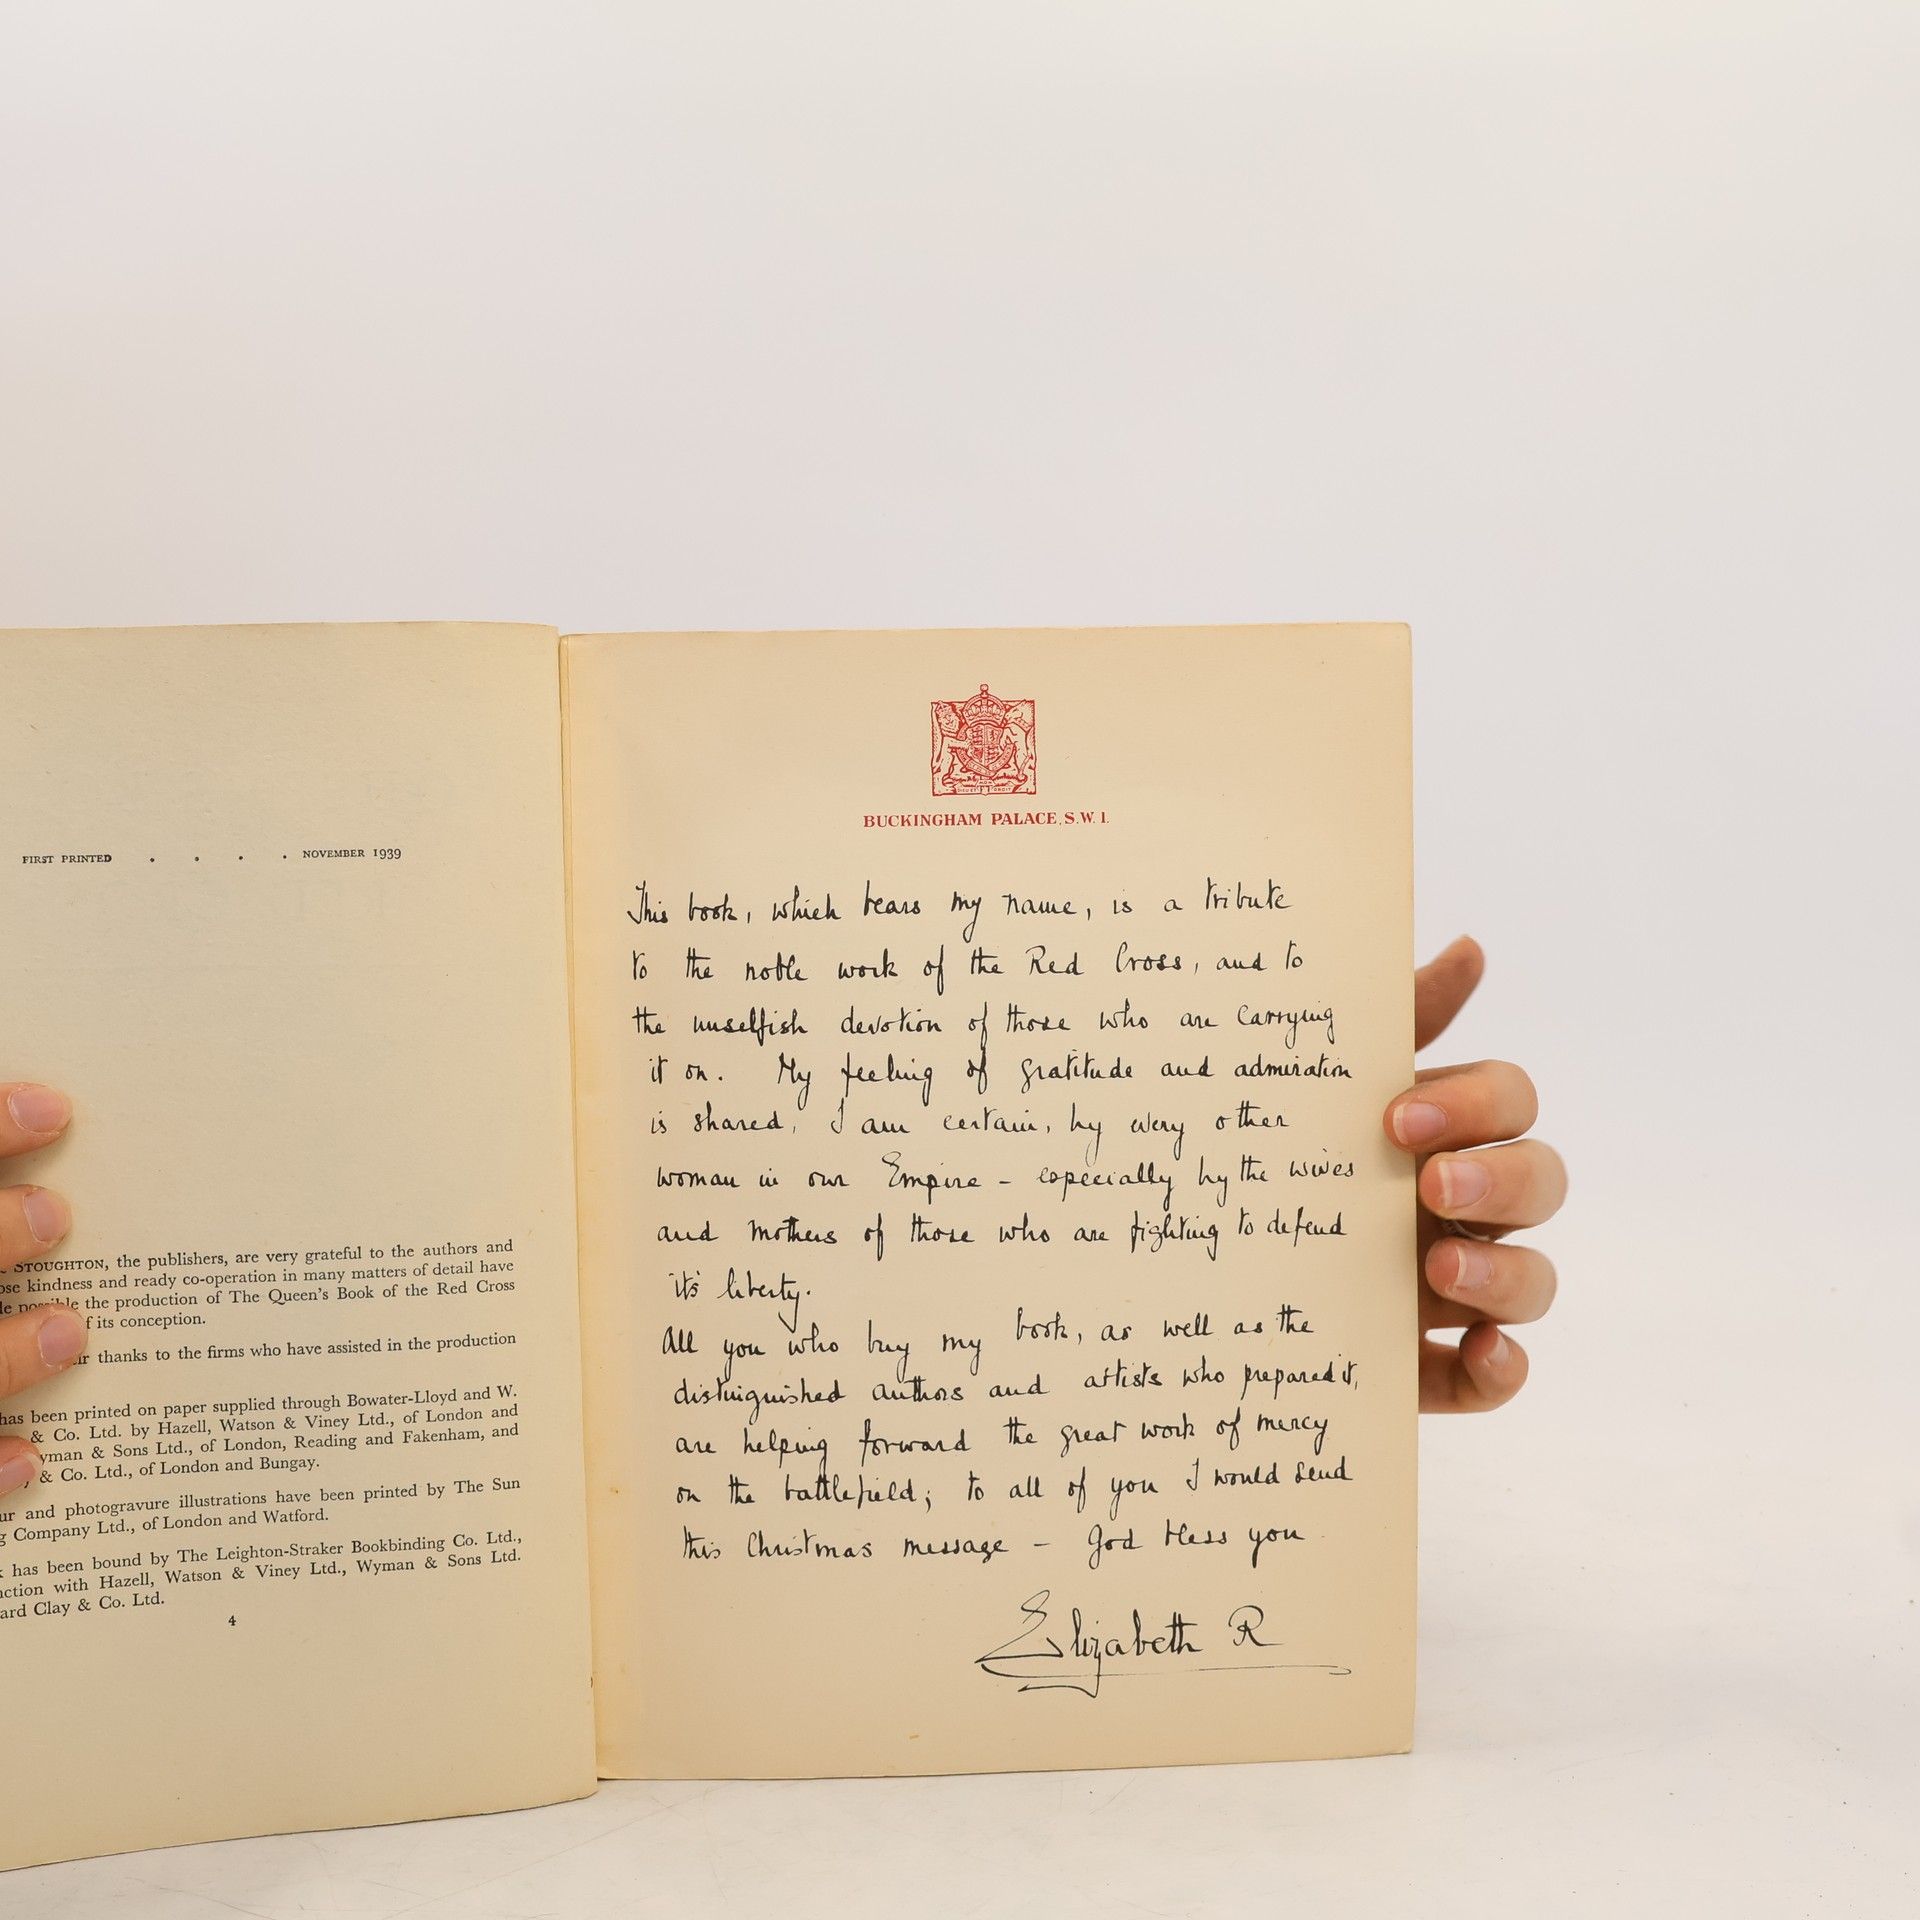 FIRST PRINTED . . . . NOVEMBER 1939
STOUGHTON, the publishers, are very grateful to the authors and
ose kindness and ready co-operation in many matters of detail have
le possible the production of The Queen's Book of the Red Cross
f its conception.
ir thanks to the firms who have assisted in the production
has been printed on paper supplied through Bowater-Lloyd and W.
& Co. Ltd. by Hazell, Watson & Viney Ltd., of London and
yman & Sons Ltd., of London, Reading and Fakenham, and
& Co. Ltd., of London and Bungay.
ur and photogravure illustrations have been printed by The Sun
g Company Ltd., of London and Watford.
k has been bound by The Leighton-Straker Bookbinding Co. Ltd.,
nction with Hazell, Watson & Viney Ltd., Wyman & Sons Ltd.
ard Clay & Co. Ltd.
4
BUCKINGHAM PALACE, S.W. 1.
This book, which bears my name, is a tribute
to the noble work of the Red Cross, and to
the unselfish devotion of those who are carrying
it on. My feeling of gratitude and admiration
is shared, I am certain, by every other
woman in our Empire – especially by the wives
and mothers of those who are fighting to defend
it's liberty.
All you who buy my book, as well as the
distinguished authors and artists who prepared it,
are helping forward the great work of mercy
on the battlefield; to all of you I would send
this Christmas message – God bless you
Elizabeth R